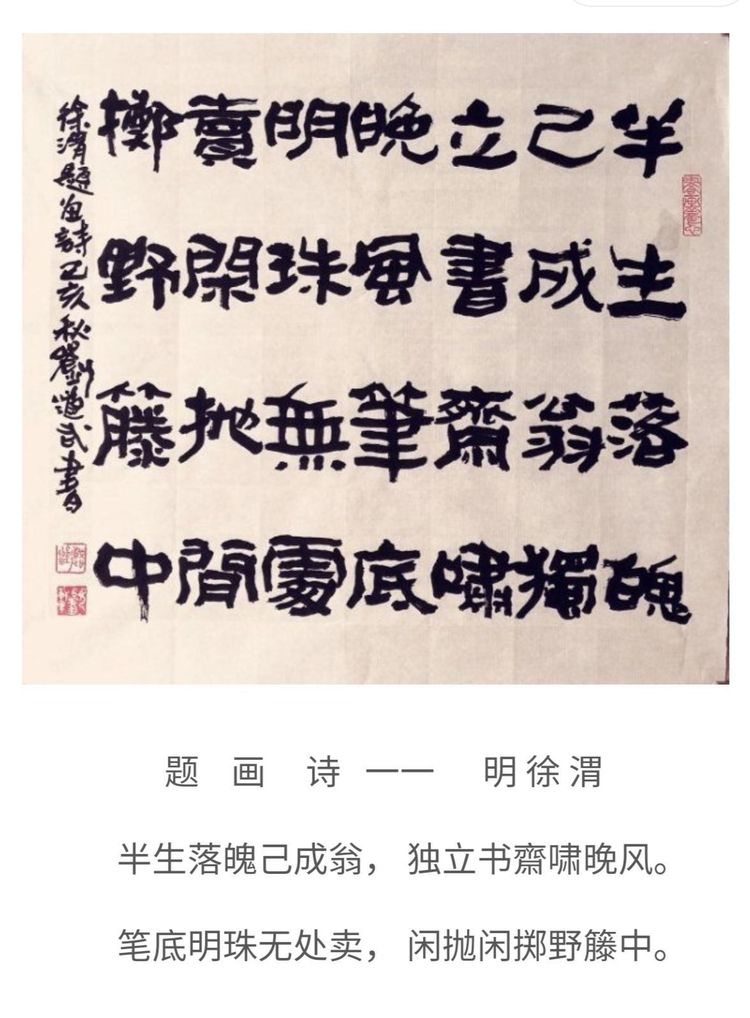 半生落魄
己成翁獨
立書齋嘯
晚風筆底
明珠無處
賣閑抛間
擲野籐中
徐渭題画詩己亥秋劉武書
题 画 诗 一一 明徐渭
半生落魄己成翁， 独立书齋啸晚风。
笔底明珠无处卖， 闲抛闲掷野籐中。